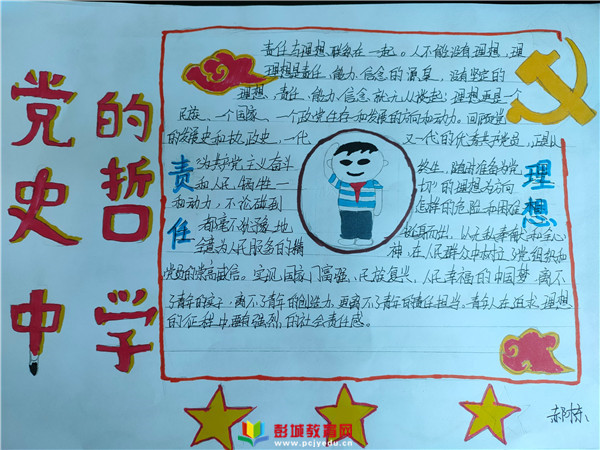 党史中
的哲学
责任与理想联系在一起。人不能没有理想,理
理想是责任、能力、信念的源泉,没有坚定的
理想,责任、能力、信念就无从谈起;理想更是一个
民族、一个国家、一个政党生存和发展的方向和动力。回顾党
的发展史和执政史,一代 又一代的优秀共产党员,正是以
为共产党主义奋斗 终生,随时准备为党
和人民牺牲一 切"的理想为方向
和动力,不论碰到 怎样的危险和困难
都毫不犹豫地 挺身而出,以无私奉献和全心
全意为人民服务的精 神,在人民群众中树立了党组织和
党员的崇高威信。实现国家富强、民族复兴、人民幸福的中国梦,离不
了青年的奋斗,离不了青年的创造力,更离不了青年的责任担当。青年人在追求理想
的征程中要有强烈的社会责任感。
责任
理想
郝栋
彭城教育网
www.pcjyedu.cn